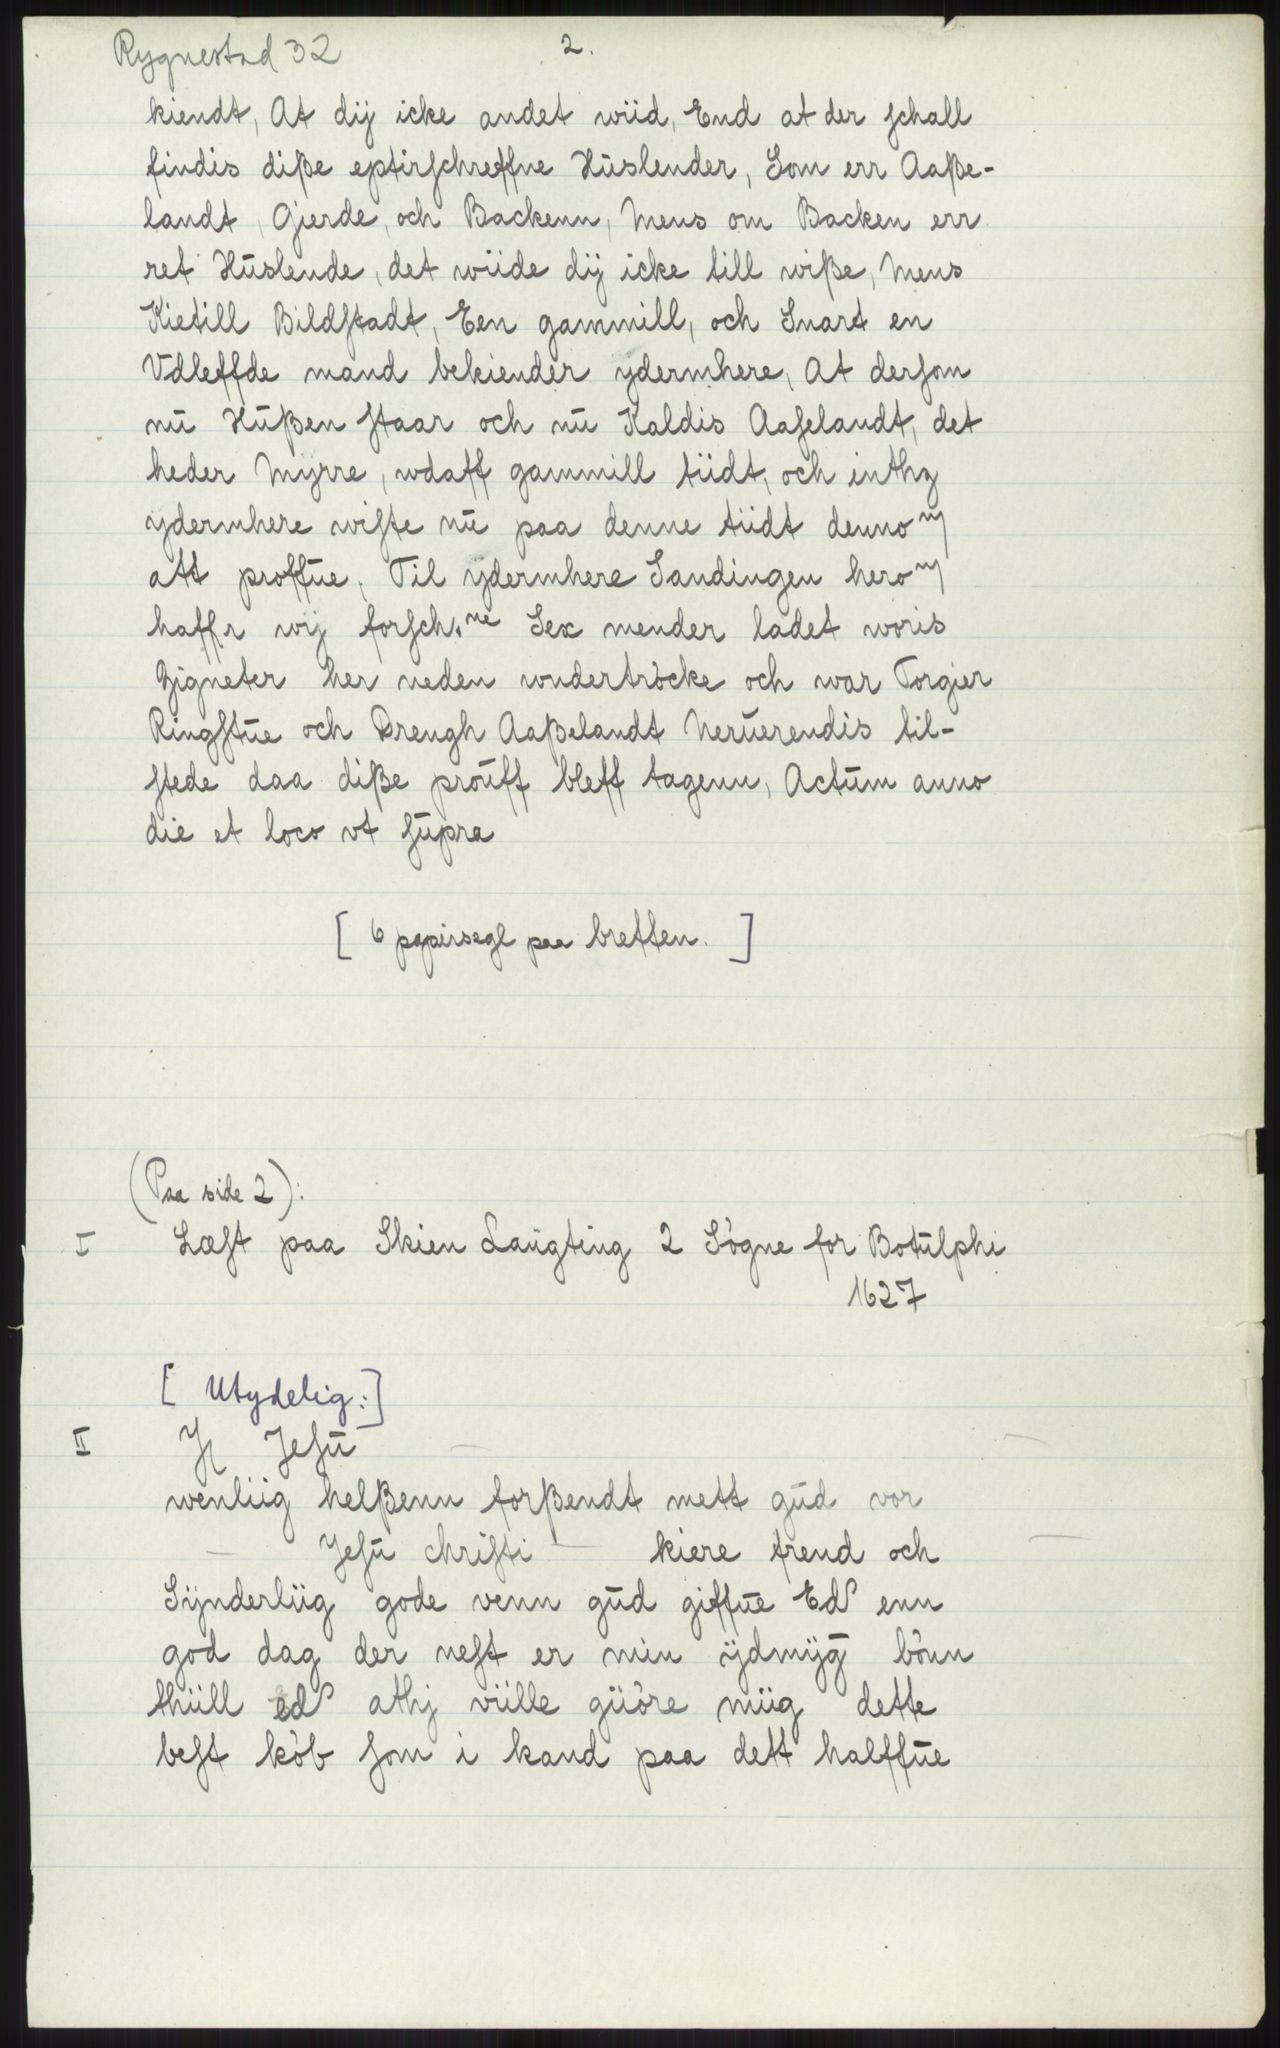 Rygnestad 32
2.
kiendt, At dij icke andet wiid, End at der schall
findis diße eptirschreffne Hüslender, Som err Aaße-
landt, Gierde, och Backenn, Mens om Backen err
ret Hüslende, det wiide dij icke till wiße, Mens
Kietill Bildstadt, Een gammill, och Snart en
Vdleffde mand bekiender ydermhere, At dersom
nü Hüßen staar och nü Kaldis Aaselandt, det
heder Myrre, wdaff gammill tiidt, och inthz
ydermhere wiste nü paa denne tiidt denno m
att proffüe, Til ydermhere Sandingen hero m
haff.r wij forsch.ne Sex mender ladet woris
Zigneter her neden wndertròcke och war Torgier
Ringstüe och Drengh Aaßelandt Nerüerendis til-
stede daa diße proüff bleff tagenn, Actüm anno
die et loco vt süpra
[ 6 papirsegl paa bretten. ]
(Paa side 2):
I Læst paa Skien Laugting 2 Sògne for Botülphi
1627
[ Utydelig: ]
II Jesü —
wenliig helßenn forßendt mett güd vor
— Jesü christi — kiere frend och —
Sÿnderliig gode venn güd giffüe Ed enn
god dag der nest er min ÿdmÿg bònn
thiill ed athj viille güòre miig dette
best kòb som i kand paa dett halffüe